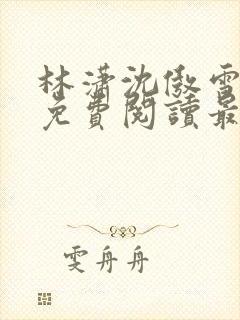 林瀟沈傲雪
免費閱讀最
雯舟舟